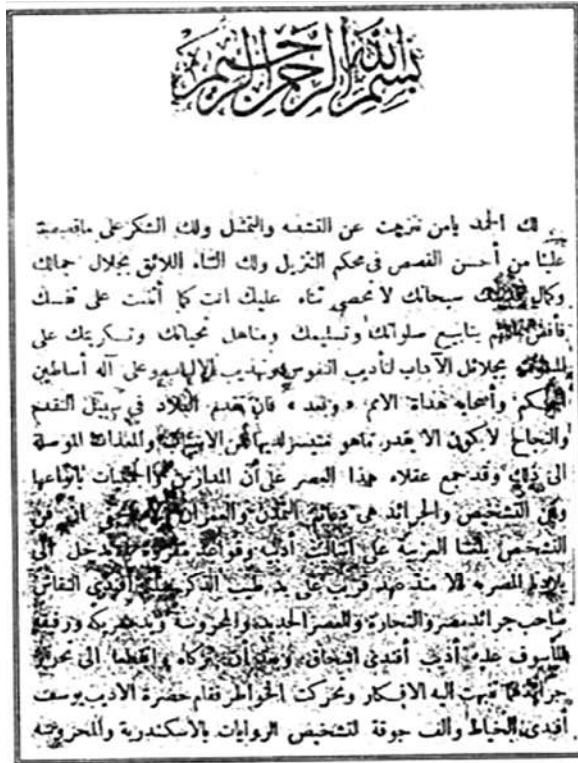 بسم الله الرحمن الرحيم
لك الحمد يامن تنزهت عن التشبه والتمثل ولك الشكر على ماقصصت
علينا من أحسن القصص فى محكم التنزيل ولك الثناء اللائق بجلال جمالك
وكمال سبحانك لا نحصى ثناء عليك انت كما أثنيت على نفسك
ينابيع صلواتك وتسليمك ومناهل تحياتك وتكريمك على
بجلائل الآداب لتأديب النفوس وتهذيب الالباب وعلى آله أساطين
الحكم وأصحابه هداة الامم «وبعد» فان تقدم البلاد في سبيل التقدم
والنجاح لا يكون الا بقدر ماهو متيسر لديها من الاسباب والمعدات الموصلة
الى ذلك وقد جمع عقلاء هذا العصر على أن المدارس والجمعيات بانواعها
وفن التشخيص والجرائد هى دعائم التمدن والعمران فن
التشخيص بلغتنا العربية على اساليب أدبية وقواعد مقررة لم يدخل الى
بلادنا المصرية الا منذ عهد قريب على يد طيب الذكر سليم أفندى النقاش
صاحب جرائد مصر والتجارة والعصر الجديد والمحروسة ويد شريكه ورفيقه
المأسوف عليه أديب أفندى اسحاق وبعد أن تركاه وانقطعا الى تحرير
جرائدهما تنبهت اليه الافكار وتحركت الخواطر فقام حضرة الاديب يوسف
أفندى الخياط وألف جوقة لتشخيص الروايات بالاسكندرية والمحروسة